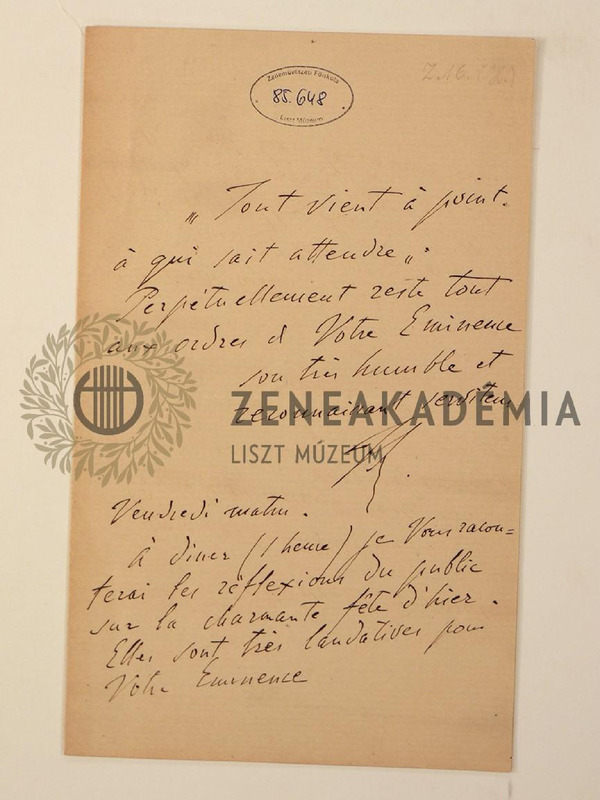 Zeneművészeti Főiskola
85.648
Liszt Múzeum
„Tout vient à point.
à qui sait attendre„.
Perpétuellement reste tout
aux ordres d Votre Eminence
son très humble et
reconnaissant serviteur
ZENEAKADEMIA
LISZT MÚZEUM
Vendredi matin.
à diner (1 heure) je Vous racon=
terai les réflexions du public
sur la charmante fête d'hier.
Elles sont très laudatives pour
Votre Eminence